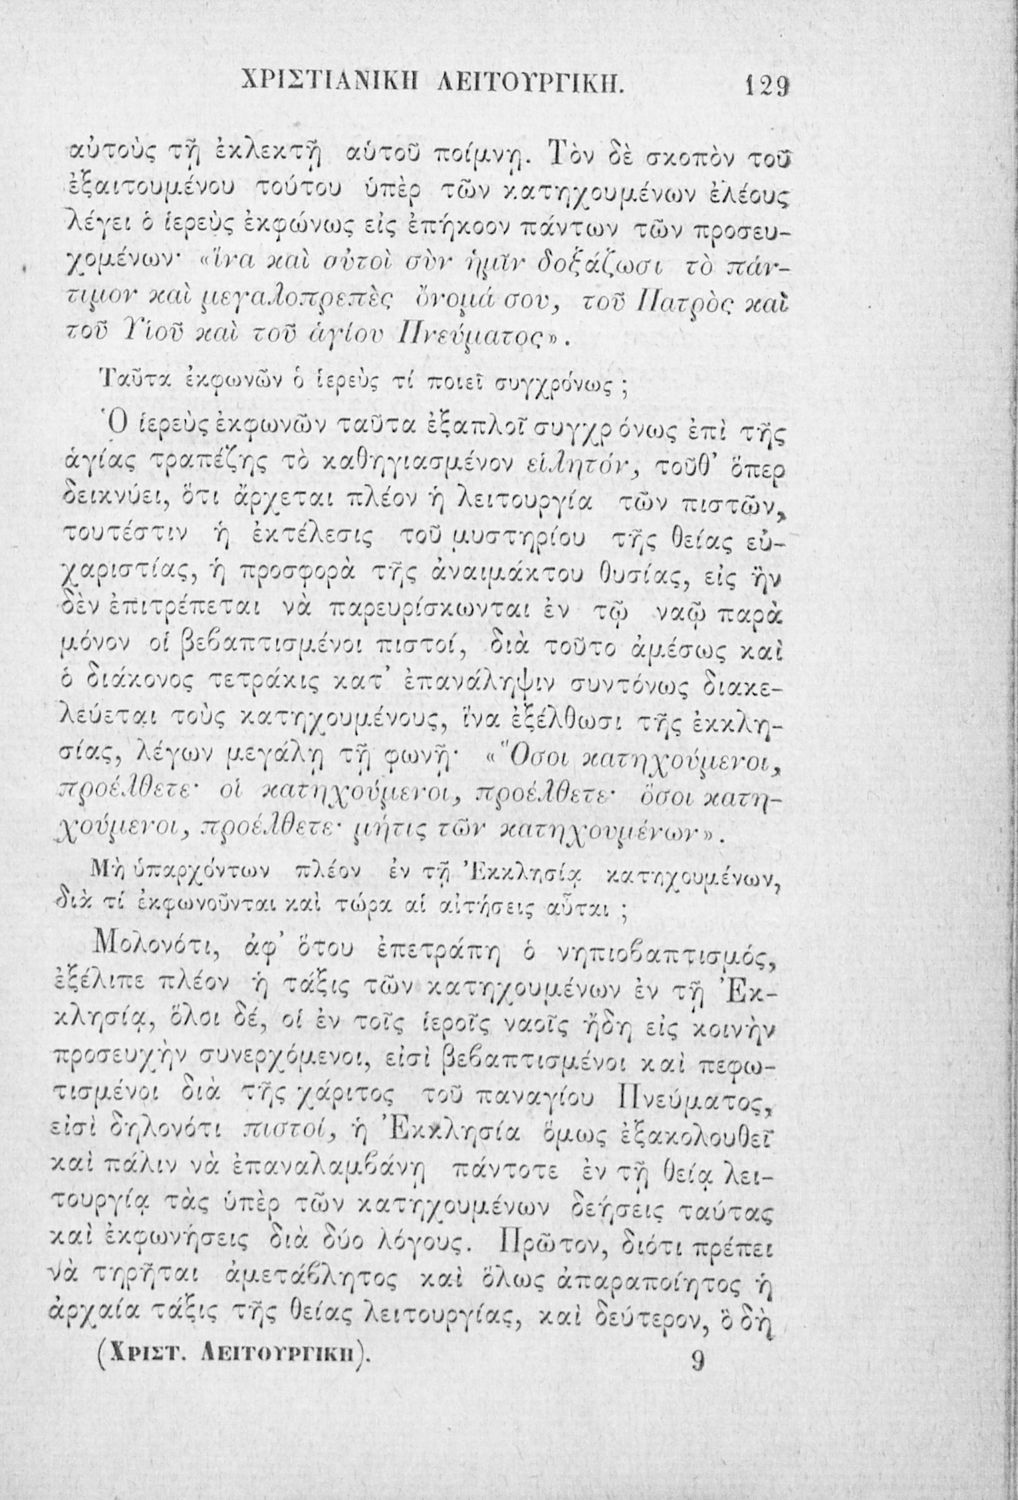 ΧΡΙΣΤΙΑΝΙΚΗ ΛΕΙΤΟΥΡΓΙΚΗ. 129
αὐτοὺς τῇ ἐκλεκτῇ αὑτοῦ ποίμνῃ. Τὸν δὲ σκοπὸν τοῦ
ἐξαιτουμένου τούτου ὑπὲρ τῶν κατηχουμένων ἐλέους
λέγει ὁ ἱερεὺς ἐκφώνως εἰς ἐπήκοον πάντων τῶν προσευ-
χομένων· «ἵνα καὶ αὐτοὶ σὺν ἡμῖν δοξάζωσι τὸ πάν-
τιμον καὶ μεγαλοπρεπὲς ὄνομά σου, τοῦ Πατρὸς καὶ
τοῦ Υἱοῦ καὶ τοῦ ἁγίου Πνεύματος».
Ταῦτα ἐκφωνῶν ὁ ἱερεὺς τί ποιεῖ συγχρόνως ;
Ὁ ἱερεὺς ἐκφωνῶν ταῦτα ἐξαπλοῖ συγχρόνως ἐπὶ τῆς
ἁγίας τραπέζης τὸ καθηγιασμένον εἰλητόν, τοῦθ' ὅπερ
δεικνύει, ὅτι ἄρχεται πλέον ἡ λειτουργία τῶν πιστῶν,
τουτέστιν ἡ ἐκτέλεσις τοῦ μυστηρίου τῆς θείας εὐ-
χαριστίας, ἡ προσφορὰ τῆς ἀναιμάκτου θυσίας, εἰς ἣν
δὲν ἐπιτρέπεται νὰ παρευρίσκωνται ἐν τῷ ναῷ παρὰ
μόνον οἱ βεβαπτισμένοι πιστοί, διὰ τοῦτο ἀμέσως καὶ
ὁ διάκονος τετράκις κατ' ἐπανάληψιν συντόνως διακε-
λεύεται τοὺς κατηχουμένους, ἵνα ἐξέλθωσι τῆς ἐκκλη-
σίας, λέγων μεγάλῃ τῇ φωνῇ· «Ὅσοι κατηχούμενοι,
προέλθετε· οἱ κατηχούμενοι, προέλθετε· ὅσοι κατη-
χούμενοι, προέλθετε· μήτις τῶν κατηχουμένων».
Μὴ ὑπαρχόντων πλέον ἐν τῇ Ἐκκλησίᾳ κατηχουμένων,
διὰ τί ἐκφωνοῦνται καὶ τώρα αἱ αἰτήσεις αὗται ;
Μολονότι, ἀφ' ὅτου ἐπετράπη ὁ νηπιοβαπτισμός,
ἐξέλιπε πλέον ἡ τάξις τῶν κατηχουμένων ἐν τῇ Ἐκ-
κλησίᾳ, ὅλοι δέ, οἱ ἐν τοῖς ἱεροῖς ναοῖς ἤδη εἰς κοινὴν
προσευχὴν συνερχόμενοι, εἰσὶ βεβαπτισμένοι καὶ πεφω-
τισμένοι διὰ τῆς χάριτος τοῦ παναγίου Πνεύματος,
εἰσὶ δηλονότι πιστοί, ἡ Ἐκκλησία ὅμως ἐξακολουθεῖ
καὶ πάλιν νὰ ἐπαναλαμβάνῃ πάντοτε ἐν τῇ θείᾳ λει-
τουργίᾳ τὰς ὑπὲρ τῶν κατηχουμένων δεήσεις ταύτας
καὶ ἐκφωνήσεις διὰ δύο λόγους. Πρῶτον, διότι πρέπει
νὰ τηρῆται ἀμετάβλητος καὶ ὅλως ἀπαραποίητος ἡ
ἀρχαία τάξις τῆς θείας λειτουργίας, καὶ δεύτερον, ὃ δὴ
(ΧΡΙΣΤ. ΛΕΙΤΟΥΡΓΙΚΗ). 9